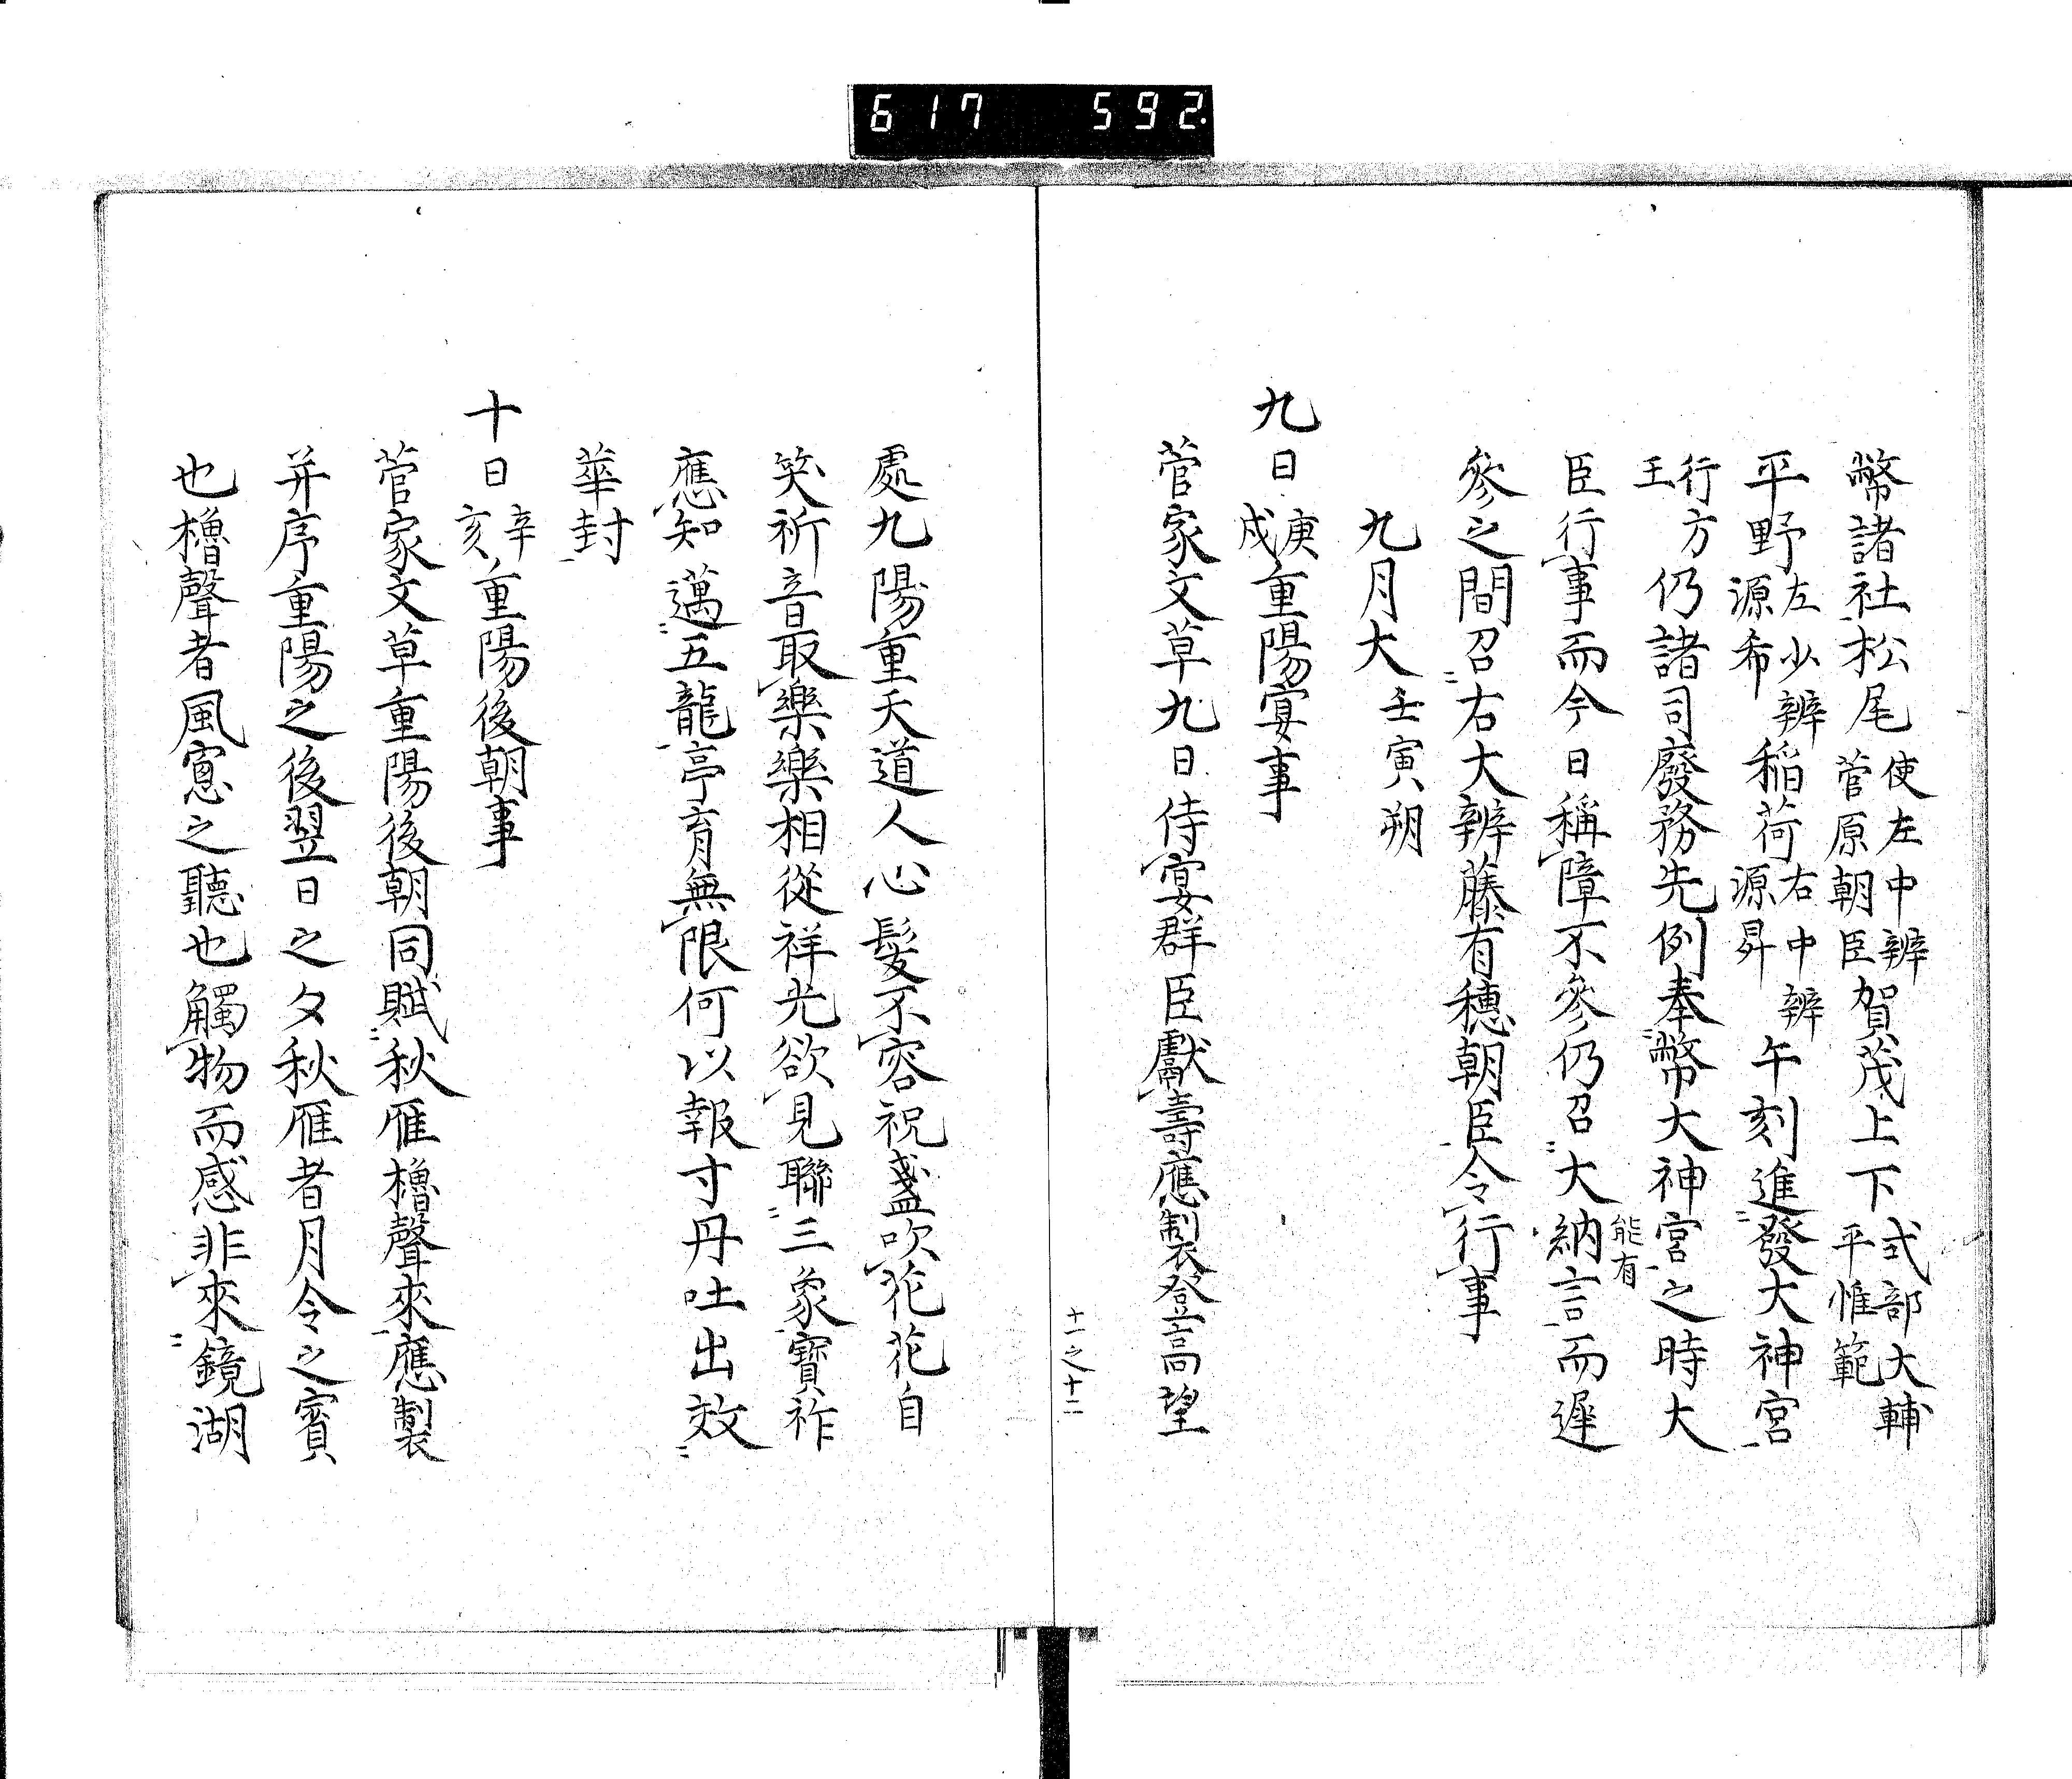 617 592.
幣諸社松尾使左中辨菅原朝臣賀茂上下式部大輔平惟範
平野左少辨源希稲荷右中辨源昇午刻進發大神宮
行方王仍諸司廢務先例奉幣大神宮之時大
臣行事而今日稱障不參仍召大納言能有而遲
參之間召右大辨藤有穗朝臣令行事
九月大壬寅朔
九日庚戌重陽宴事
菅家文草九日侍宴群臣獻壽應製登高望
十一之十二
處九陽重天道人心髮不容祝盞吹花花自
笑祈音取樂樂相從祥光欲見聯三象寶祚
應知邁五龍亭育無限何以報寸丹吐出效
華封
十日辛亥重陽後朝事
菅家文草重陽後朝同賦秋雁櫓聲來應製
并序重陽之後翌日之夕秋雁者月令之賓
也櫓聲者風窻之聽也觸物而感非來鏡湖